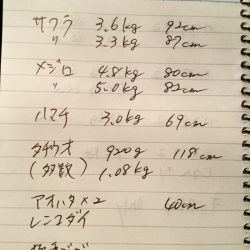 サワラ 3.6kg 92cm
〃 3.3kg 87cm
メジロ 4.8kg 80cm
〃 5.0kg 82cm
ハマチ 3.0kg 69cm
タチウオ 920g 118cm
(多数) 1.08kg
アオハタ×2 40cm
レンコダイ